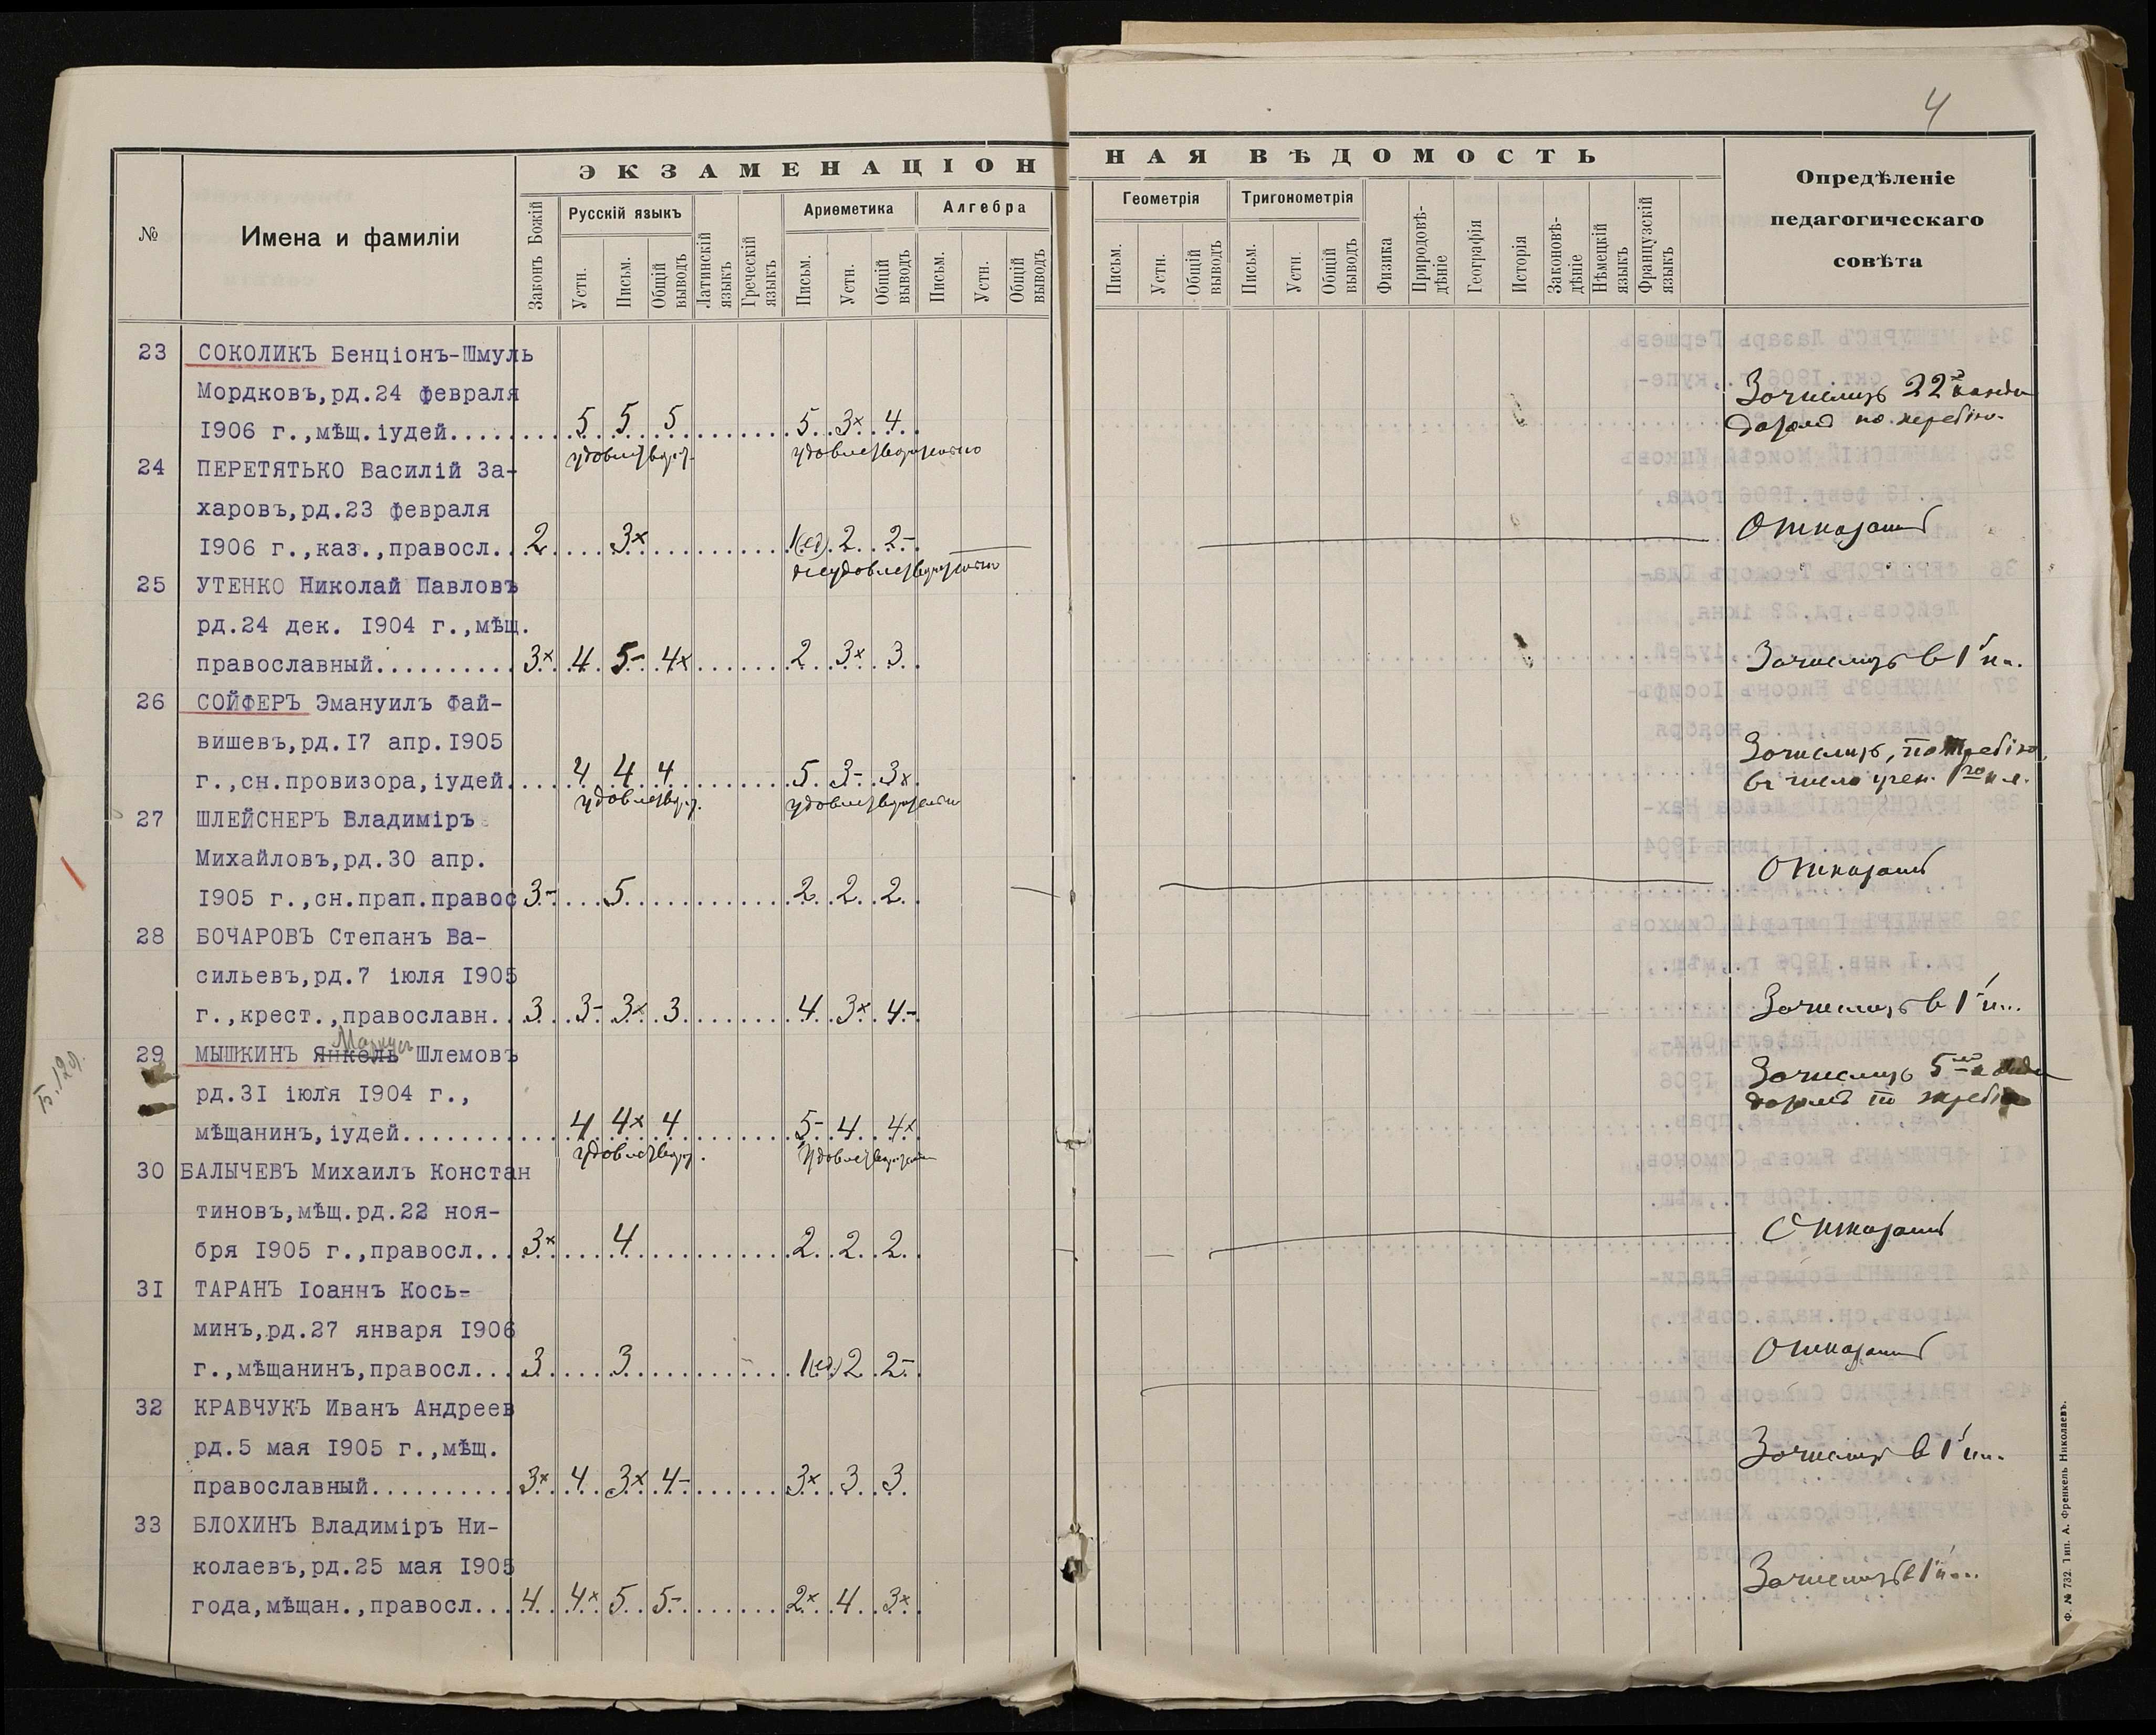 4
ЭКЗАМЕНАЦІОН
НАЯ ВѢДОМОСТЬ
№
Имена и фамиліи
Законъ Божій
Русскій языкъ
Устн.
Письм.
Общій выводъ
Латинскій языкъ
Греческій языкъ
Ариѳметика
Письм.
Устн.
Общій выводъ
Алгебра
Письм.
Устн.
Общій выводъ
Геометрія
Письм.
Устн.
Общій выводъ
Тригонометрія
Письм.
Устн.
Общій выводъ
Физика
Природовѣ-
дѣніе
Географія
Исторія
Законовѣ-
дѣніе
Нѣмецкій языкъ
Французскій языкъ
Опредѣленіе
педагогическаго
совѣта
23 СОКОЛИКЪ Бенціонъ-Шмуль
Мордковъ,рд.24 февраля
1906 г.,мѣщ.іудей.... 5 5 5 5 3× 4
удовлетвор. удовлетворительно
Зачислить 22 канди
датомъ по жребію
24 ПЕРЕТЯТЬКО Василій За-
харовъ,рд.23 февраля
1906 г.,каз.,правосл.. 2 3× 1(ед) 2 2- Отказать
неудовлетворительно
25 УТЕНКО Николай Павловъ
рд.24 дек. 1904 г.,мѣщ.
православный.......... 3× 4 5- 4× 2 3× 3 Зачислить в 1 кл.
26 СОЙФЕРЪ Эмануилъ Фай-
вишевъ,рд.17 апр.1905
г.,сн.провизора,іудей. 4 4 4 5 3- 3×
удовлетвор. удовлетворительно
Зачислить, по жребію,
въ число учен. 1го кл.
27 ШЛЕЙСНЕРЪ Владиміръ
Михайловъ,рд.30 апр.
1905 г.,сн.прап.правос 3- 5 2 2 2 Отказать
28 БОЧАРОВЪ Степанъ Ва-
сильевъ,рд.7 іюля 1905
г.,крест.,православн.. 3 3- 3× 3 4 3× 4- Зачислить в 1 кл.
Маркусъ
29 МЫШКИНЪ Янкель Шлемовъ
рд.31 іюля 1904 г.,
мѣщанинъ,іудей........ 4 4× 4 5- 4 4×
удовлетвор. Удовлетворительно
Зачислить 5 канди
датомъ по жребію
30 БАЛЫЧЕВЪ Михаилъ Констан
тиновъ,мѣщ.рд.22 ноя-
бря 1905 г.,правосл... 3× 4 2 2 2 Отказать
31 ТАРАНЪ Іоаннъ Кось-
минъ,рд.27 января 1906
г.,мѣщанинъ,правосл... 3 3 1(ед) 2 2- Отказать
32 КРАВЧУКЪ Иванъ Андреев
рд.5 мая 1905 г.,мѣщ.
православный.......... 3× 4 3× 4- 3× 3 3 Зачислить в 1 кл.
33 БЛОХИНЪ Владиміръ Ни-
колаевъ,рд.25 мая 1905
года,мѣщан.,правосл... 4 4× 5 5- 2× 4 3× Зачислить в 1 кл.
Ф. № 732. Тип. А. Френкель Николаевъ.